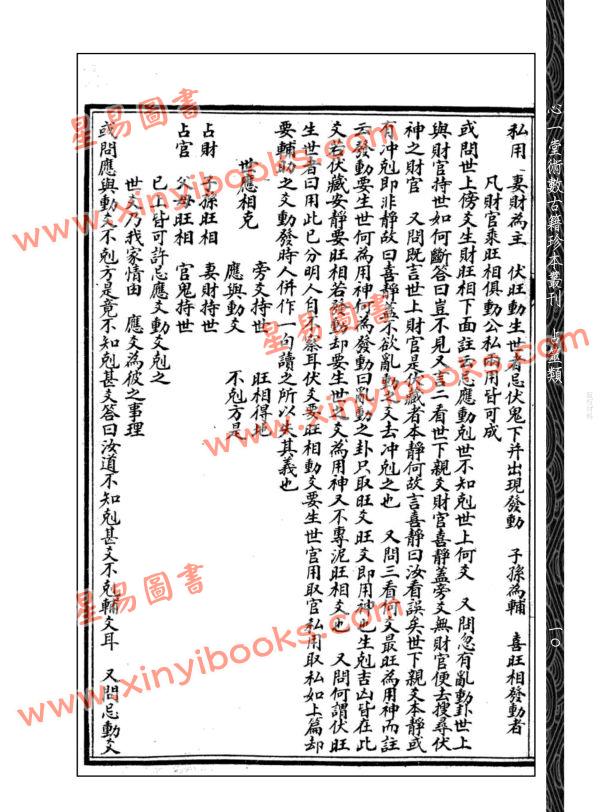 心一堂術數古籍珍本叢刊 占筮類
一〇
私用 妻財為主 伏旺動生世者忌伏鬼下并出現發動 子孫為輔 喜旺相發動者
凡財官乘旺相俱動公私兩用皆可成
或問世上傍爻生財旺相下面註云忌應動剋世不知剋世上何爻 又問忽有亂動卦世上
與財官持世如何斷答曰豈不見又言二看世下親爻財官喜靜蓋旁爻無財官便去搜尋伏
神之財官 又問既言世上財官是伏藏者本靜何故言喜靜曰汝看誤矣世下親爻本靜或
有冲剋即非靜故曰喜靜蓋不欲亂動之爻去冲剋之也 又問三看何爻最旺為用神而註
云發動要生世何為用神何為發動曰亂動之卦只取旺爻旺爻即用神也生剋吉凶皆在此
爻若伏藏安靜要旺相若發動却要生世之爻為用神又不專泥旺相爻也 又問何謂伏旺
生世者曰用此已分明人自不察耳伏爻要旺相動爻要生世官用取官私用取私如上篇却
要輔助之爻動發時人併作一句讀之所以失其義也
世應相克 旁爻持世 旺相得地
應與動爻 不剋方是
占財 子孫旺相 妻財持世
占官 父母旺相 官鬼持世
已上皆可許忌應爻動爻剋之
世爻乃我家情由 應爻為彼之事理
或問應與動爻不剋方是竟不知剋甚爻答曰汝道不知剋甚爻不剋輔爻耳 又問忌動爻
星易圖書
www.xinyibooks.com
星易圖書
www.xinyibooks.com
星易圖書
www.xinyibooks.com